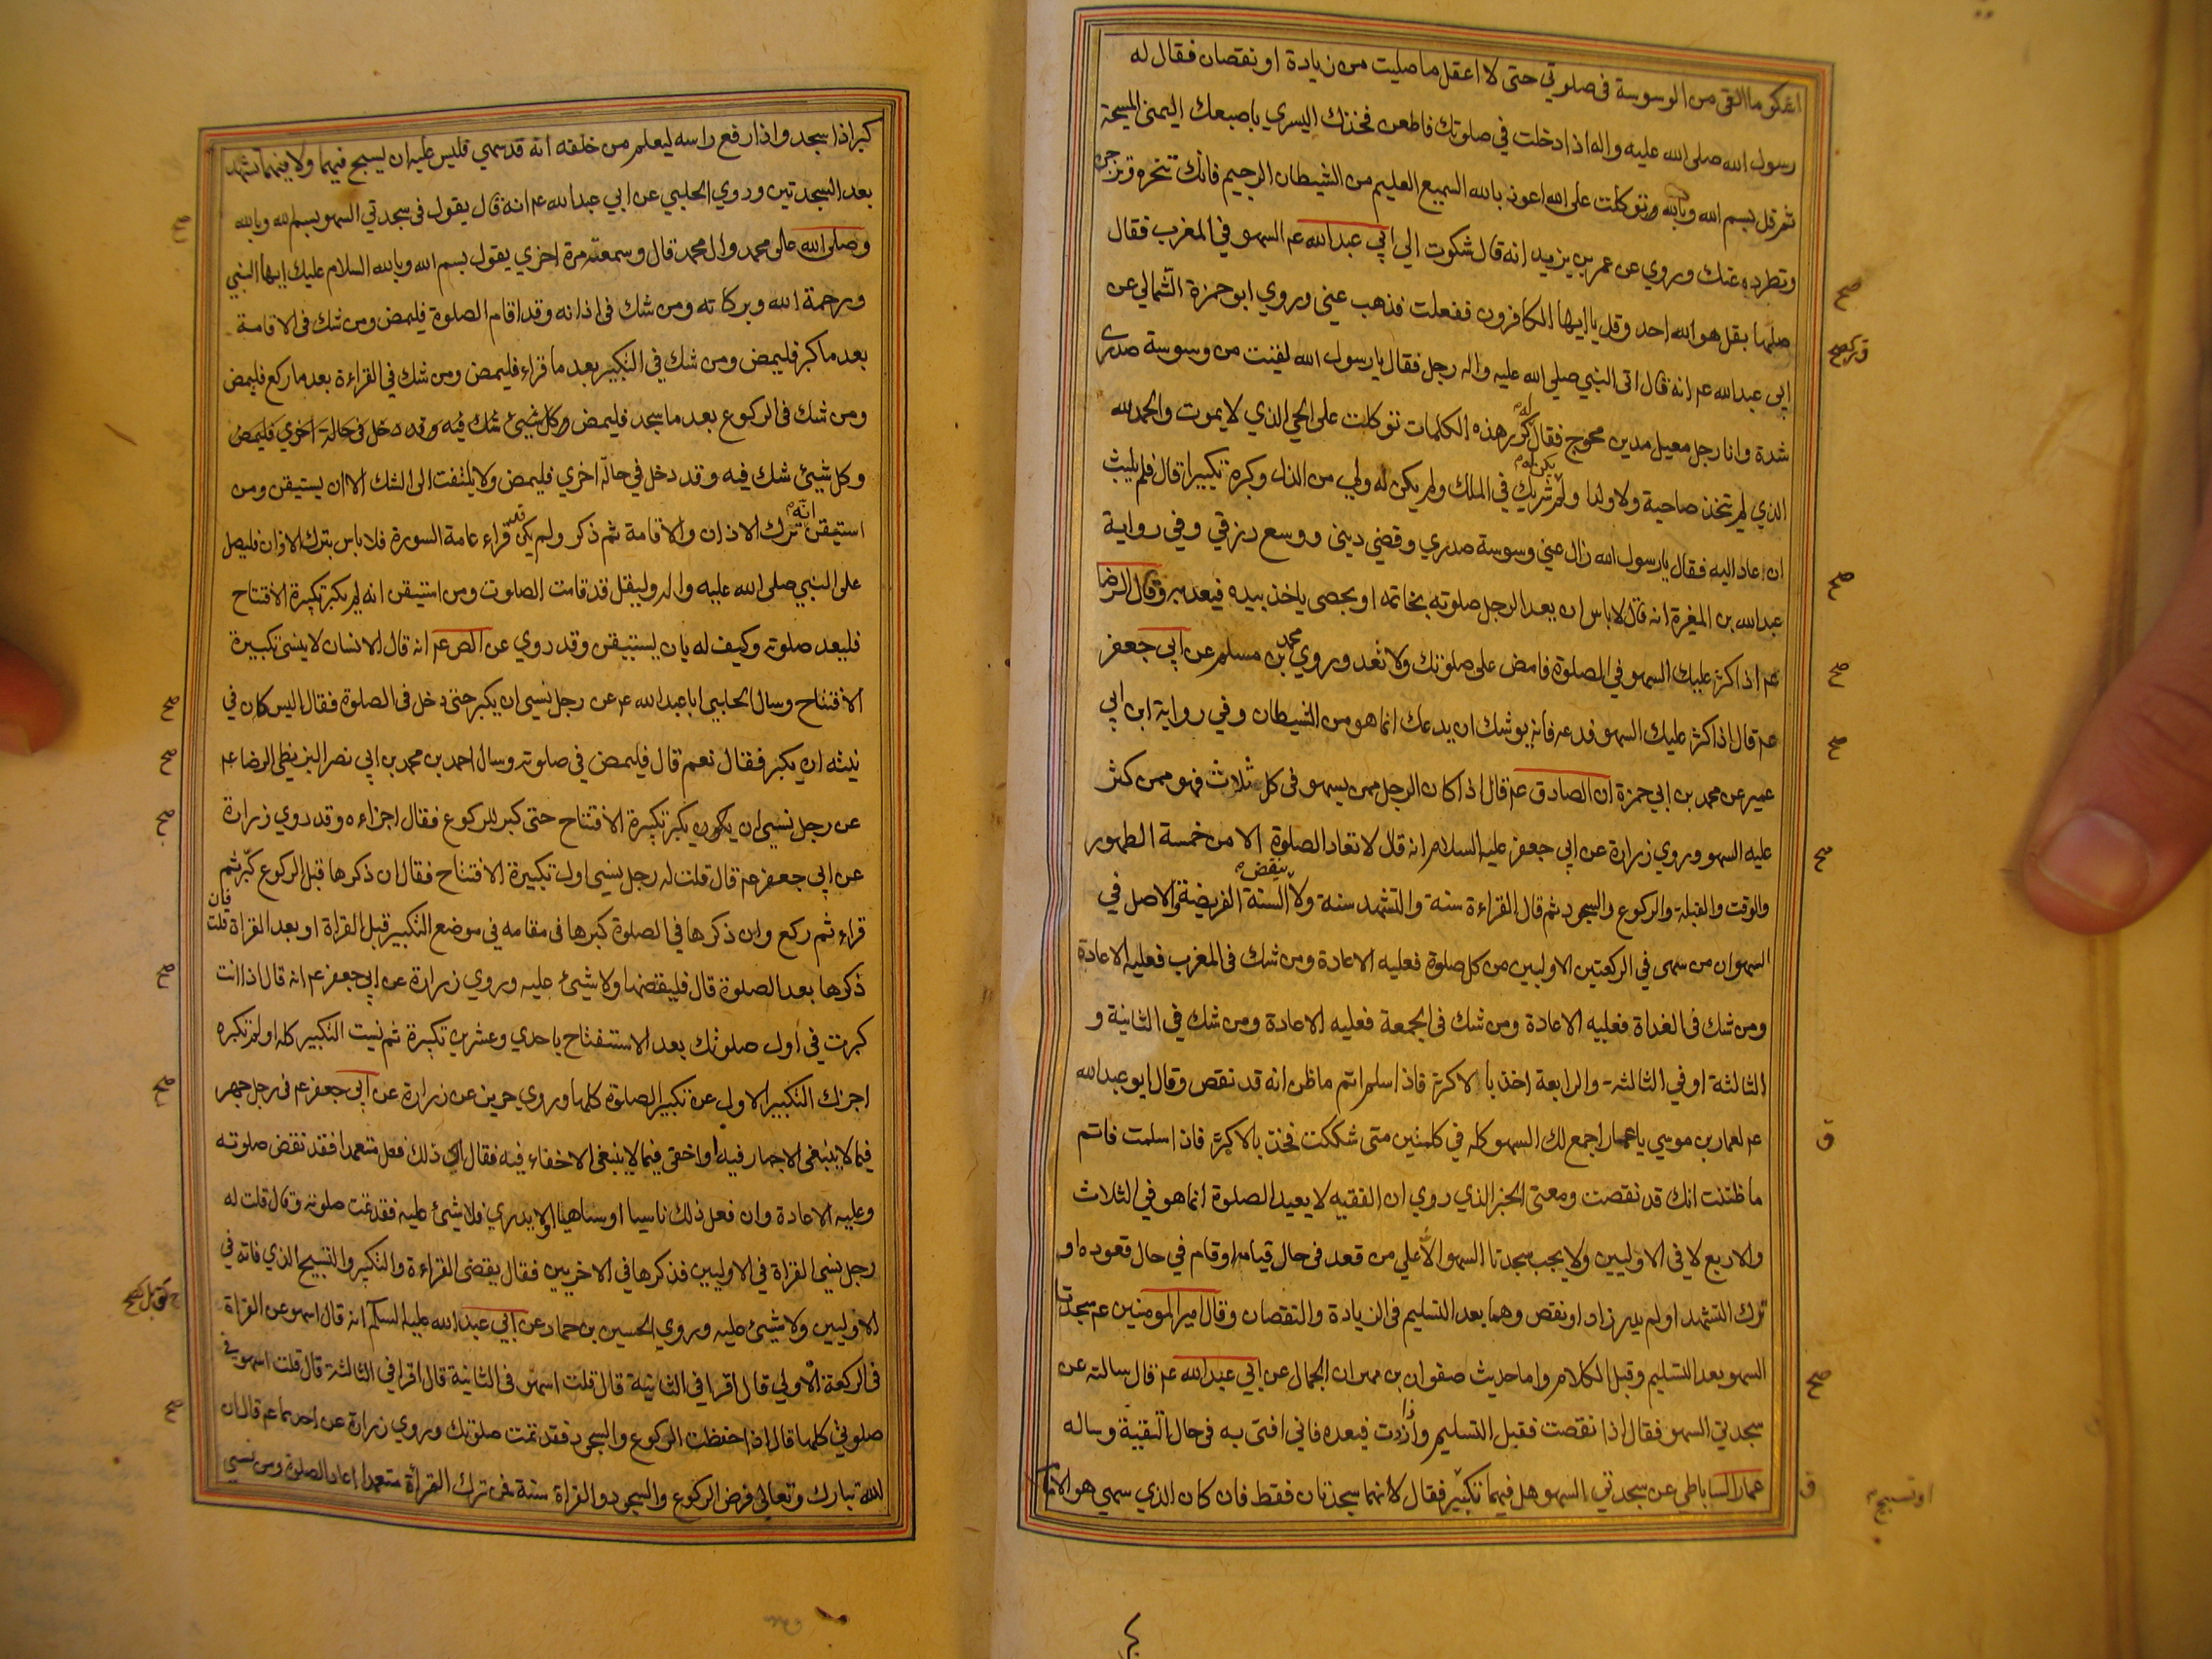 اشكو ما القى من الوسوسة فى صلوتي حتى لا اعقل ما صليت من زيادة او نقصان فقال له
رسول الله صلى الله عليه واله اذا دخلت في صلوتك فاطعن فخذك اليسري باصبعك اليمنى المسبحة
ثم قل بسم الله وبالله وتوكلت على الله اعوذ بالله السميع العليم من الشيطان الرجيم فانك تنحره وتزجره
وتطرده عنك وروي عن عمر بن يزيد انه قال شكوت الي ابي عبد الله عم السهو في المغرب فقال
صلها بقل هو الله احد وقل يا ايها الكافرون ففعلت فذهب عني وروي ابو حمزة الثمالي عن
ابي عبد الله عم انه قال اتى النبي صلى الله عليه واله رجل فقال يا رسول الله لقيت من وسوسة صدري
شدة وانا رجل معيل مدين محوج فقال له كرر هذه الكلمات توكلت على الحي الذي لا يموت والحمد لله
الذي لم يتخذ صاحبة ولا ولدا ولم يكن له شريك في الملك ولم يكن له ولي من الذل وكبره تكبيرا قال فلم يلبث
ان عاد اليه فقال يا رسول الله زال عني وسوسة صدري وقضى ديني ووسع رزقي وفي رواية
عبد الله بن المغيرة انه قال لا باس ان يعد الرجل صلوته بخاتمه او بحصى ياخذ بيده فيعد به وقال الرضا
عم اذا كثر عليك السهو في الصلوة فامض على صلوتك ولا تعد وروي محمد بن مسلم عن ابي جعفر
عم قال اذا كثر عليك السهو فدعه فانه يوشك ان يدعك انما هو من الشيطان وفي رواية ابن ابي
عمير عن محمد بن ابي حمزة ان الصادق عم قال اذا كان الرجل ممن يسهو في كل ثلاث فهو ممن كثر
عليه السهو وروي زرارة عن ابي جعفر عليه السلام انه قال لا تعاد الصلوة الا من خمسة الطهور
والوقت والقبلة والركوع والسجود ثم قال القراءة سنة والتشهد سنة ولا ينقض السنة الفريضة والاصل في
السهو ان من سهى في الركعتين الاوليين من كل صلوة فعليه الاعادة ومن شك فى المغرب فعليه الاعادة
ومن شك فى الغداة فعليه الاعادة ومن شك فى الجمعة فعليه الاعادة ومن شك في الثانية و
الثالثة او في الثالثة والرابعة اخذ بالاكثر فاذا سلم اتم ما ظن انه قد نقص وقال ابو عبد الله
عم لعمار بن موسي يا عمار اجمع لك السهو كله في كلمتين متى شككت فخذ بالاكثر فاذا سلمت فاتم
ما ظننت انك قد نقصت ومعنى الخبر الذي روي ان الفقيه لا يعيد الصلوة انما هو في الثلاث
والاربع لا فى الاوليين ولا يجب سجدتا السهو الا على من قعد فى حال قيامه او قام في حال قعوده او
ترك التشهد او لم يدر زاد او نقص وهما بعد التسليم فى الزيادة والنقصان وقال امير المومنين عم سجدتا
السهو بعد التسليم وقبل الكلام واما حديث صفوان بن مهران الجمال عن ابي عبد الله عم قال سالته عن
سجدتي السهو فقال اذا نقصت فقبل التسليم واذا زدت فبعده فاني افتى به فى حال التقية وساله
عمار الساباطي عن سجدتي السهو هل فيهما تكبير فقال لا انهما سجدتان فقط فان كان الذي سهى هو الامام
او تسبيح
كبر اذا سجد واذا رفع راسه ليعلم من خلفه انه قد سهي فليس عليه ان يسبح فيهما ولا فيهما تشهد
بعد السجدتين وروي الحلبي عن ابي عبد الله عم انه قال يقول فى سجدتي السهو بسم الله وبالله
وصلى الله على محمد وال محمد قال وسمعته مرة اخري يقول بسم الله وبالله السلام عليك ايها النبي
ورحمة الله وبركاته ومن شك فى اذانه وقد اقام الصلوة فليمض ومن شك فى الاقامة
بعد ما كبر فليمض ومن شك في التكبير بعد ما قراء فليمض ومن شك في القراءة بعد ما ركع فليمض
ومن شك فى الركوع بعد ما سجد فليمض وكل شيئ شك فيه وقد دخل فى حالة اخري فليمض
وكل شيئ شك فيه وقد دخل في حالة اخري فليمض ولا يلتفت الى الشك الا ان يستيقن ومن
استيقن انه ترك الاذان والاقامة ثم ذكر ولم يكن قد قراء عامة السورة فلا باس بترك الاذان فليصل
على النبي صلى الله عليه واله وليقل قد قامت الصلوت ومن استيقن انه لم يكبر تكبيرة الافتتاح
فليعد صلوته وكيف له بان يستيقن وقد روي عن الص عم انه قال الانسان لا ينسى تكبيرة
الافتتاح وسال الحلبي ابا عبد الله عم عن رجل نسي ان يكبر حتى دخل فى الصلوة فقال اليس كان في
نيته ان يكبر فقال نعم قال فليمض في صلوته وسال احمد بن محمد بن ابي نصر البزنطي الرضا عم
عن رجل نسي ان يكون يكبر تكبيرة الافتتاح حتى كبر للركوع فقال اجزاءه وقد روي زرارة
عن ابي جعفر عم قال قلت له رجل نسي اول تكبيرة الافتتاح فقال ان ذكرها قبل الركوع كبر ثم
قراء ثم ركع وان ذكرها في الصلوة كبرها فى مقامه في موضع التكبير قبل القراة او بعد القراة قلت فان
ذكرها بعد الصلوة قال فليقضها ولا شيئ عليه وروي زرارة عن ابي جعفر عم انه قال اذا انت
كبرت في اول صلوتك بعد الاستفتاح باحدي وعشرين تكبيرة ثم نسيت التكبير كله او لم تكبره
اجزاك التكبير الاول عن تكبير الصلوة كلها وروي حريز عن زرارة عن ابي جعفر عم فى رجل جهر
فيما لا ينبغى الاجهار فيه او اخفى فيما لا ينبغى الاخفاء فيه فقال اي ذلك فعل متعمدا فقد نقض صلوته
وعليه الاعادة وان فعل ذلك ناسيا او ساهيا او لا يدري فلا شيئ عليه فقد تمت صلوته وقال قلت له
رجل نسى القراة في الاوليين فذكرها في الاخريين فقال يقضى القراءة والتكبير والتسبيح الذي فاته في
الاوليين ولا شيئ عليه وروي الحسين بن حماد عن ابي عبد الله عليه السلام انه قال اسهو عن القراة
فى الركعة الاولي قال اقرا في الثانية قال قلت اسهو فى الثانية قال اقرا في الثالثة قال قلت اسهو في
صلوتي كلها قال اذا حفظت الركوع والسجود فقد تمت صلوتك وروي زرارة عن احدهما عم قال ان
لله تبارك وتعالى فرض الركوع والسجود والقراة سنة فمن ترك القراة متعمدا اعاد الصلوة ومن نسي